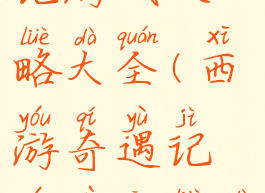 lüè dà quán xī
略大全(西
yóu qí yù jì
游奇遇记